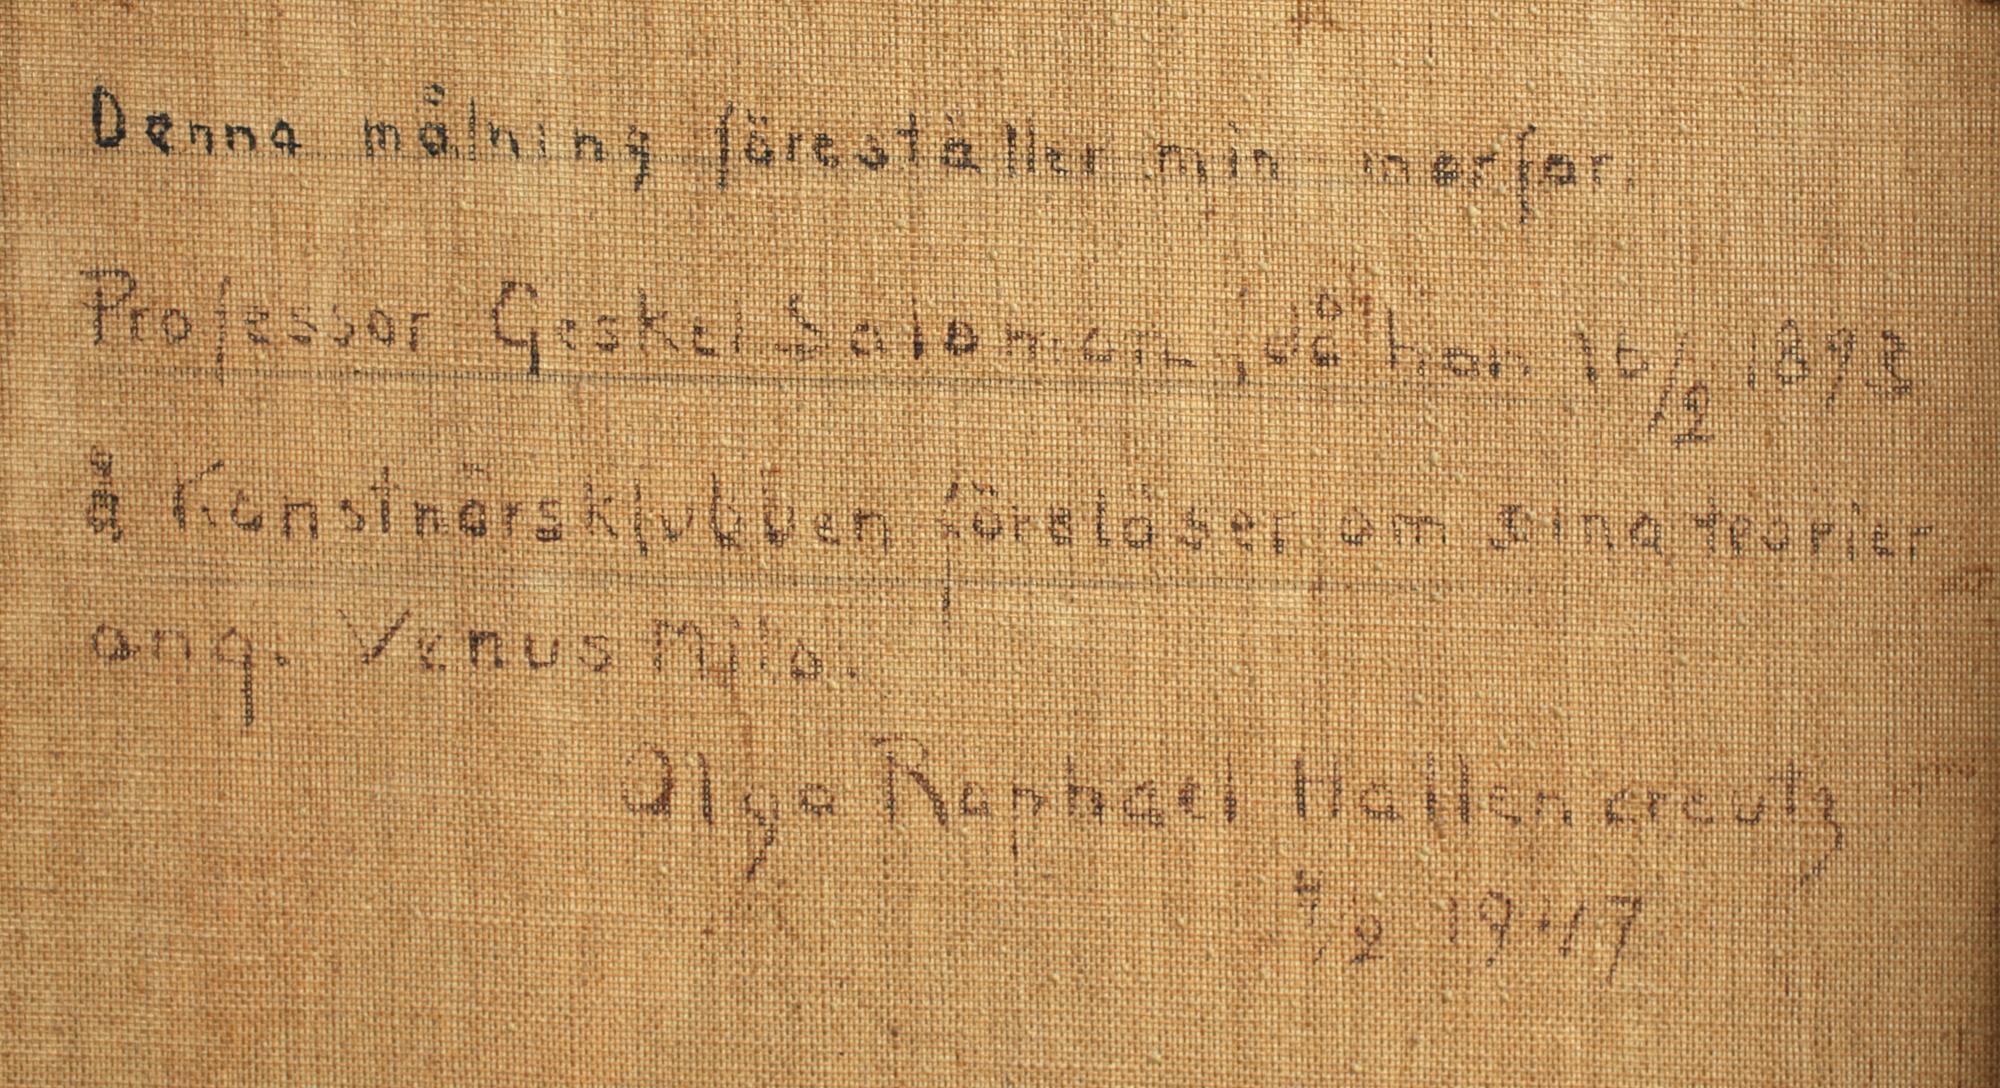 Denna målning föreställer min morfar,
Professor Geskel Saloman, då han 16/2 1893
å Konstnärsklubben föreläser om sina teorier
ang. Venus Milo.
Olga Raphael Hallencreutz
7/2 1947